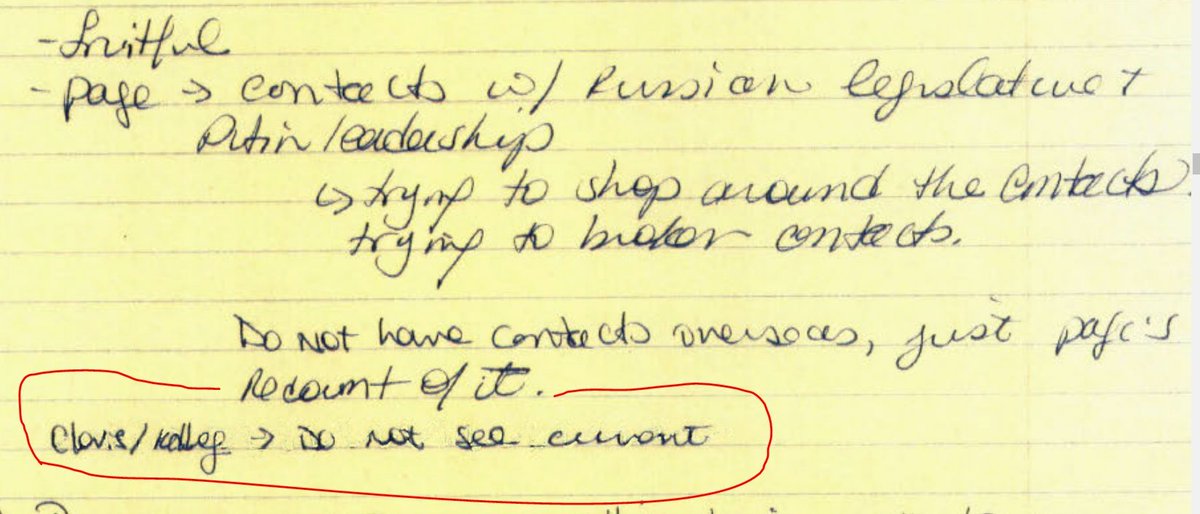 - fruitful
- page → contacts w/ Russian legislature +
Putin leadership
↳ trying to shop around the contacts.
trying to broker contacts.
Do not have contacts overseas, just page's
recount of it.
Clovis/Kellog → Do not see current